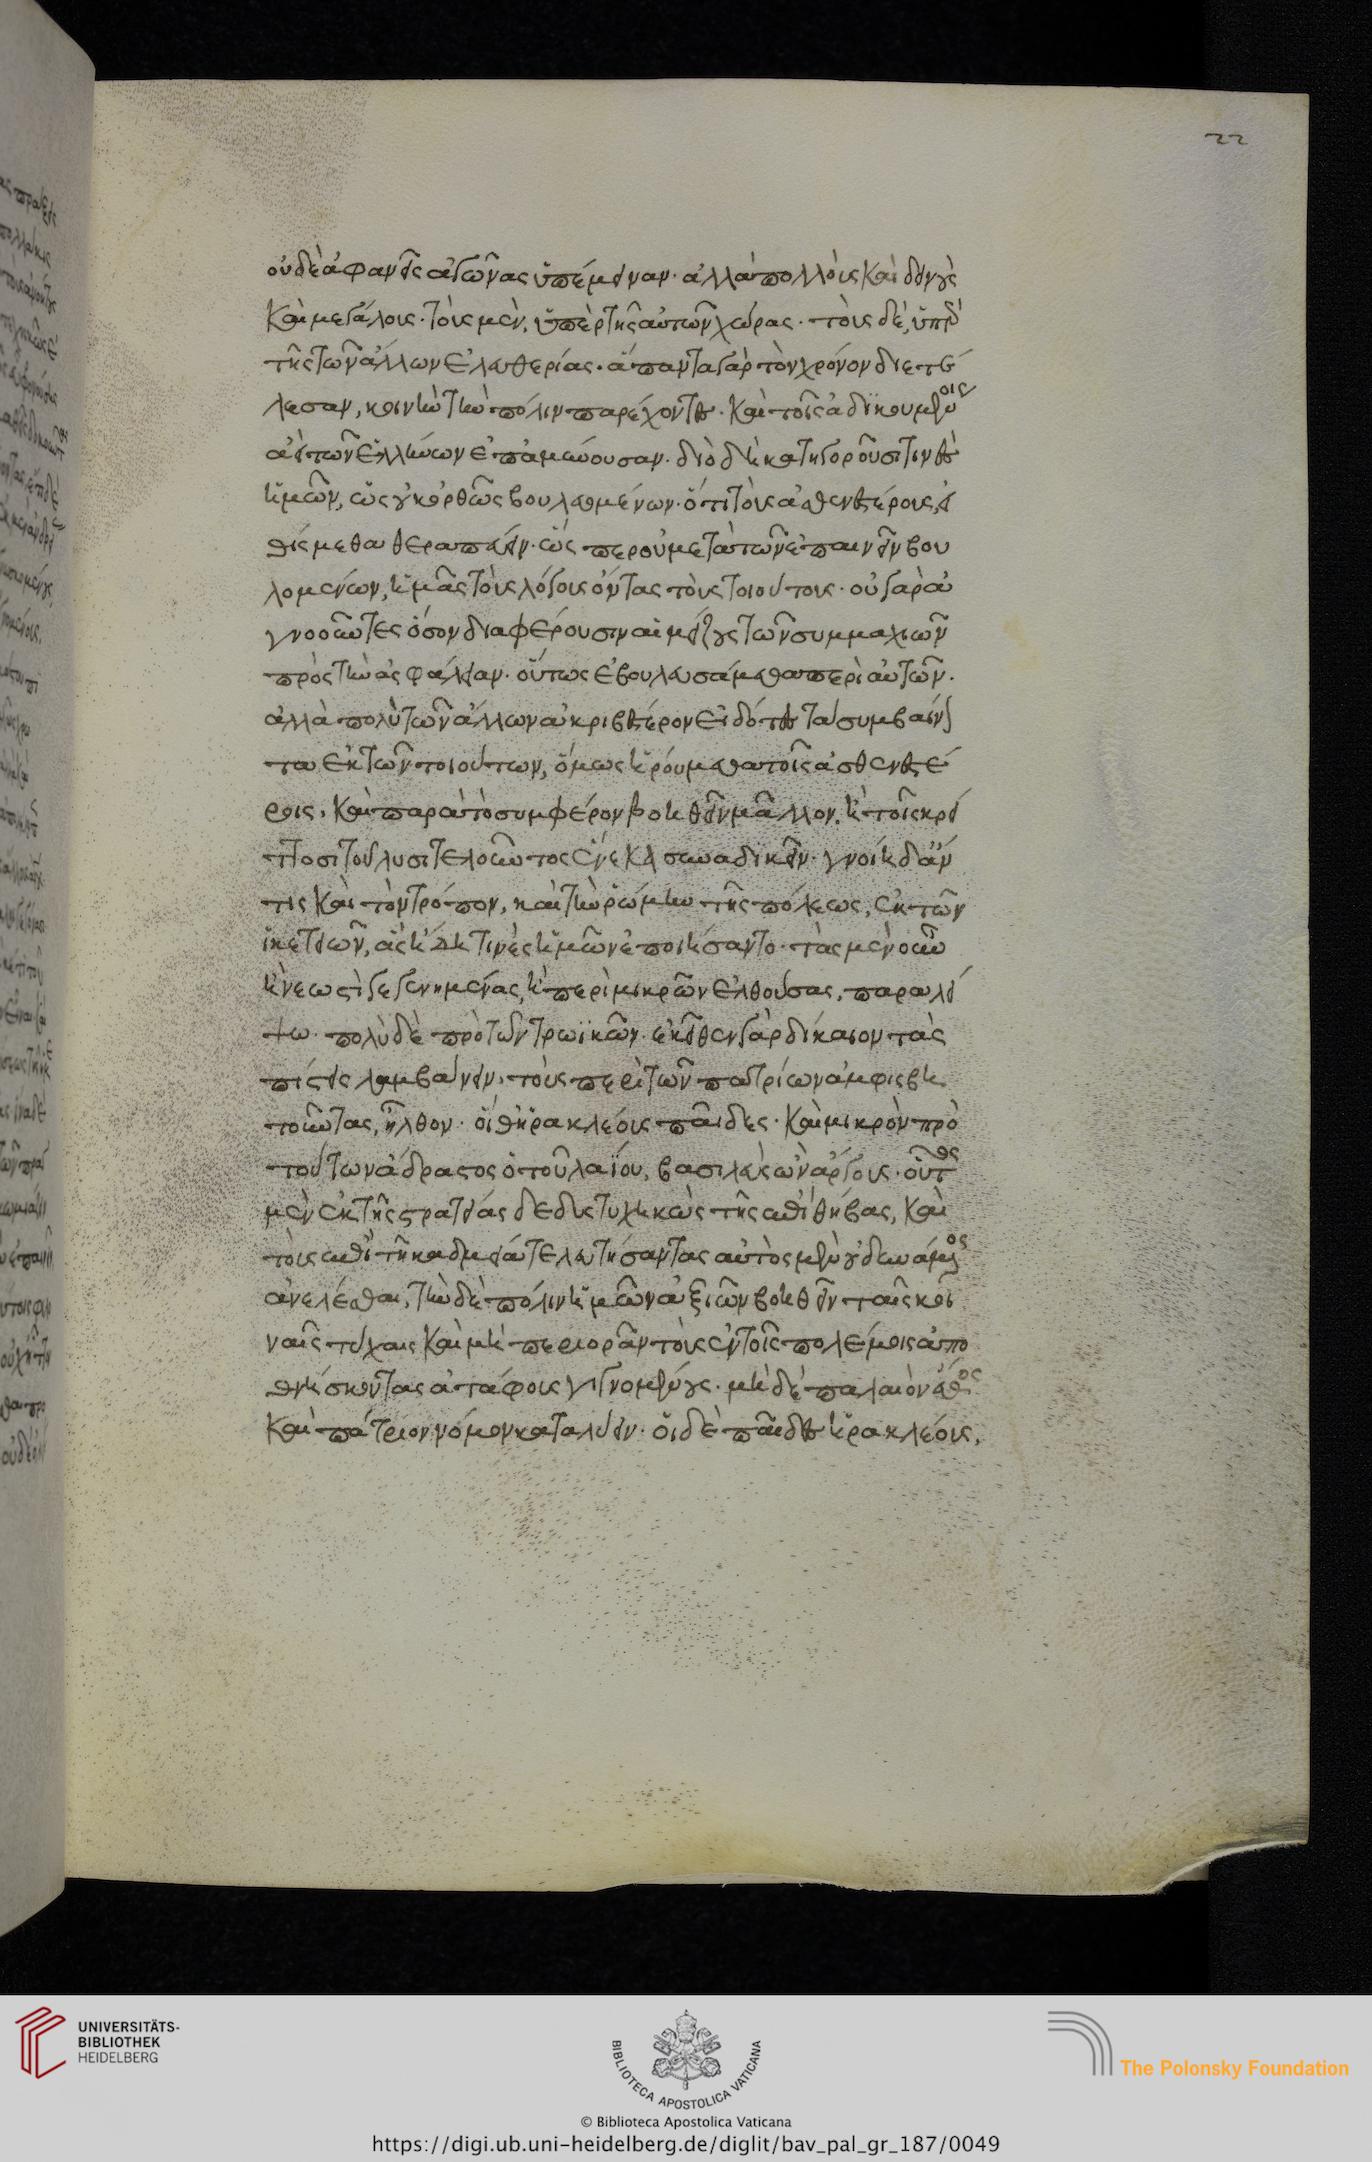 22
οὐδὲ ἀφανεῖς ἀγῶνας ὑπέμειναν· ἀλλὰ πολλοὺς καὶ δεινοὺς
καὶ μεγάλους· τοὺς μὲν, ὑπὲρ τῆς αὑτῶν χώρας· τοὺς δὲ, ὑπὲρ
τῆς τῶν ἄλλων ἐλευθερίας· ἅπαντα γὰρ τὸν χρόνον διετέ
λεσαν, κοινὴν τὴν πόλιν παρέχοντες· καὶ τοῖς ἀδικουμένοις
ἀεὶ τῶν ἑλλήνων ἐπαμύνουσαν· διὸ δὴ κατηγοροῦσί τινες
ἡμῶν, ὡς οὐκ ὀρθῶς βουλευομένων· ὅτι τοὺς ἀσθενεστέρους, εἰ
θίσμεθα θεραπεύειν· ὥσπερ οὐ μετὰ τῶν ἐπαινεῖν βου
λομένων, ἡμᾶς τοὺς λόγους ὄντας τοὺς τοιούτους· οὐ γὰρ ἀ
γνοοῦντες ὅσον διαφέρουσιν αἱ μείζους τῶν συμμαχιῶν
πρὸς τὴν ἀσφάλειαν· οὕτως ἐβουλευσάμεθα περὶ αὐτῶν·
ἀλλὰ πολὺ τῶν ἄλλων ἀκριβέστερον εἰδότες τὰ συμβαίνον
τα ἐκ τῶν τοιούτων, ὅμως ἡρούμεθα τοῖς ἀσθενεστέ
ροις, καὶ παρὰ τὸ συμφέρον βοηθεῖν μᾶλλον, ἢ τοῖς κρεί
ττοσι τοῦ λυσιτελοῦντος ἕνεκα συναδικεῖν· γνοίη δ' ἄν
τις καὶ τὸν τρόπον, καὶ τὴν ῥώμην τῆς πόλεως, ἐκ τῶν
ἱκετειῶν, ἃς ἤδη τινὲς ἡμῶν ἐποιήσαντο· τὰς μὲν οὖν
ἢ νεωστὶ γεγενημένας, ἢ περὶ μικρῶν ἐλθούσας, παραλεί
ψω· πολὺ δὲ πρὸ τῶν τρωϊκῶν· ἐκεῖθεν γὰρ δίκαιον τὰς
πίστεις λαμβάνειν, τοὺς περὶ τῶν πατρίων ἀμφισβη
τοῦντας, ἦλθον· οἵ θ' ἡρακλέους παῖδες· καὶ μικρὸν πρὸ
τούτων ἄδραστος ὁ ταλαΐου, βασιλεὺς ὢν ἄργους· οὗτος
μὲν ἐκ τῆς στρατείας δεδυστυχηκὼς τῆς ἐπὶ θήβας, καὶ
τοὺς ἐπὶ τῇ καδμείᾳ τελευτήσαντας αὐτὸς μὲν οὐ δυνάμενος
ἀνελέσθαι, τὴν δὲ πόλιν ἡμῶν ἀξιῶν βοηθεῖν ταῖς κοι
ναῖς τύχαις καὶ μὴ περιορᾶν τοὺς ἐν τοῖς πολέμοις ἀπο
θνήσκοντας ἀτάφους γιγνομένους· μὴ δὲ παλαιὸν ἔθος
καὶ πάτριον νόμον καταλύειν· οἱ δὲ παῖδες ἡρακλέους,
UNIVERSITÄTS-
BIBLIOTHEK
HEIDELBERG
BIBLIOTECA APOSTOLICA VATICANA
The Polonsky Foundation
© Biblioteca Apostolica Vaticana
https://digi.ub.uni-heidelberg.de/diglit/bav_pal_gr_187/0049